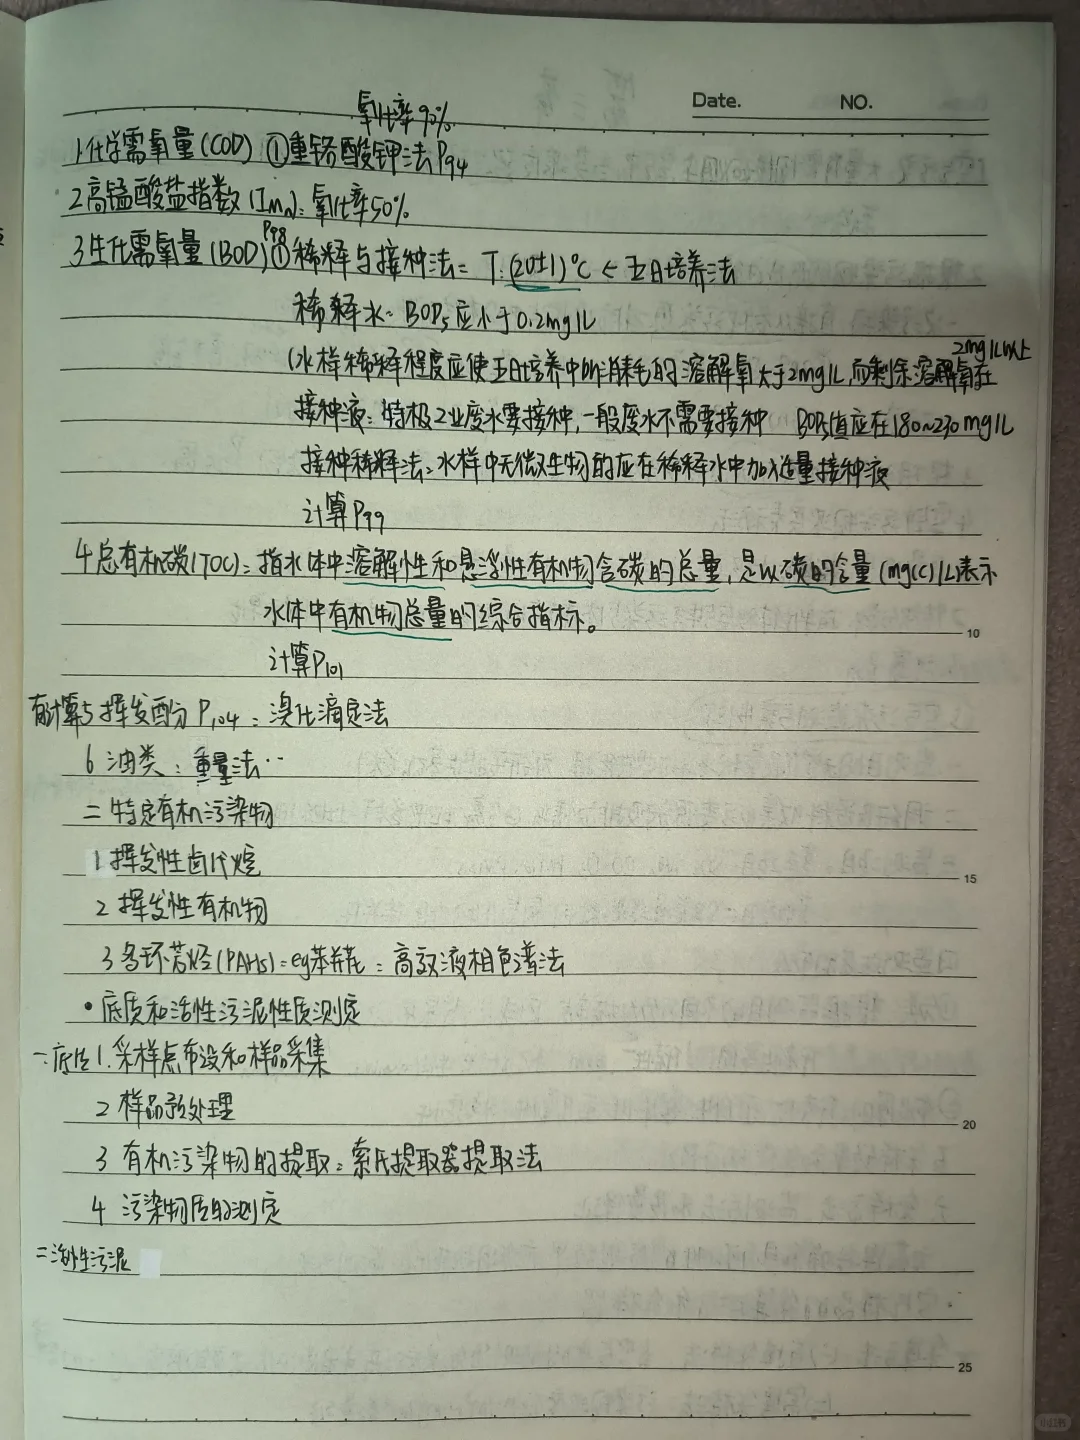 Date. NO.
氧化率90%
1.化学需氧量(COD) ①重铬酸钾法P94
2高锰酸盐指数(IMn):氧化率50%
P98
3生化需氧量(BOD)①稀释与接种法: T:(20±1)℃ < 五日培养法
稀释水: BOD5应小于0.2mg/L
2mg/L以上
(水样稀释程度应使五日培养中所消耗的溶解氧大于2mg/L,而剩余溶解氧在
接种液:特极工业废水要接种,一般废水不需要接种 BOD5值应在180~230mg/L
接种稀释法:水样中无微生物的应在稀释水中加入适量接种液
计算P99
4总有机碳(TOC):指水体中溶解性和悬浮性有机物含碳的总量,是以碳的含量(mg(c)/L)表示
水体中有机物总量的综合指标。
10
计算P101
有计算5挥发酚 P104:溴化滴定法
6油类:重量法··
二特定有机污染物
1挥发性卤代烷
15
2挥发性有机物
3多环芳烃(PAHs)=eg苯并芘:高效液相色谱法
•底质和活性污泥性质测定
一.底质1.采样点布设和样品采集
2样品预处理
20
3有机污染物的提取:索氏提取器提取法
4污染物质的测定
二活性污泥
25
小红书